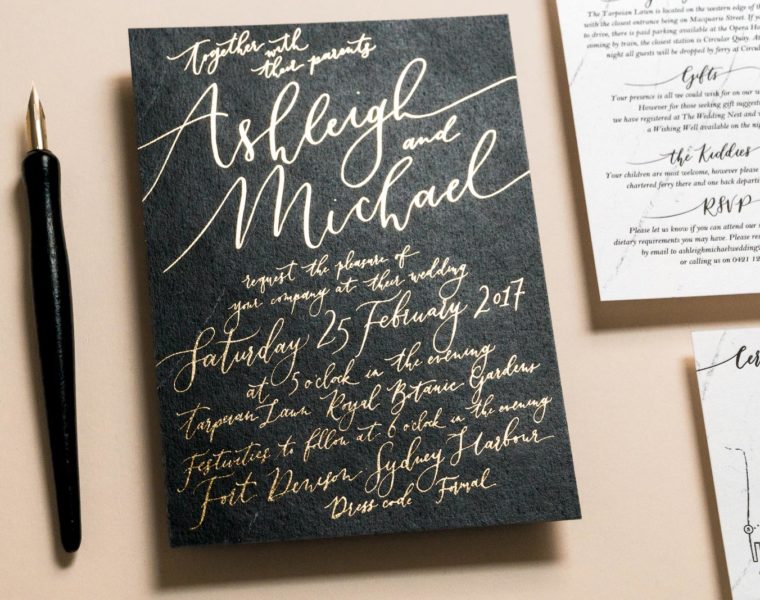 Together with
their parents
Ashleigh
and
Michael
request the pleasure of
your company at their wedding
Saturday 25 February 2017
at 5 o'clock in the evening
Tarpeian Lawn Royal Botanic Gardens
Festivities to follow at 6 o'clock in the evening
Fort Denison Sydney Harbour
Dress code Formal
The Tarpeian Lawn is located on the western edge of th
with the closest entrance being on Macquarie Street. If y
to drive, there is paid parking available at the Opera Ho
coming by train, the closest station is Circular Quay. A
night all guests will be dropped by ferry at Circul
Gifts
Your presence is all we could wish for on our w
However for those seeking gift suggest
we have registered at The Wedding Nest and
a Wishing Well available on the nig
the Kiddies
Your children are most welcome, however please
chartered ferry there and one back depart
RSVP
Please let us know if you can attend our
dietary requirements you may have. Please res
by email to ashleighmichaelwedding
or calling us on 0421 12
Cer